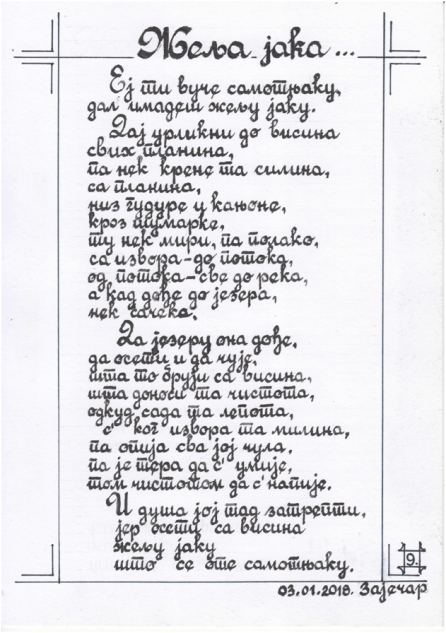 Жеља јака...
Еј ти вуче самотњаку,
дал' имадеш жељу јаку.
Дај урликни до висина
свих планина,
па нек крене та силина,
са планина,
низ гудуре и кањоне,
кроз шумарке,
ту нек мири, па полако,
са извора - до потока,
од потока - све до река,
а кад дође до језера,
нек сачека.
Да језеру она дође,
да осети и да чује,
шта то бруји са висина,
шта доноси та чистота,
одкуд сада та лепота,
с' ког извора та милина,
па опија сва јој чула,
па је тера да с' умије,
том чистотом да с' напије.
И душа јој тад затрепти,
јер осети са висина
жељу јаку
што се оте самотњаку.
9.
03.01.2018. Зајечар